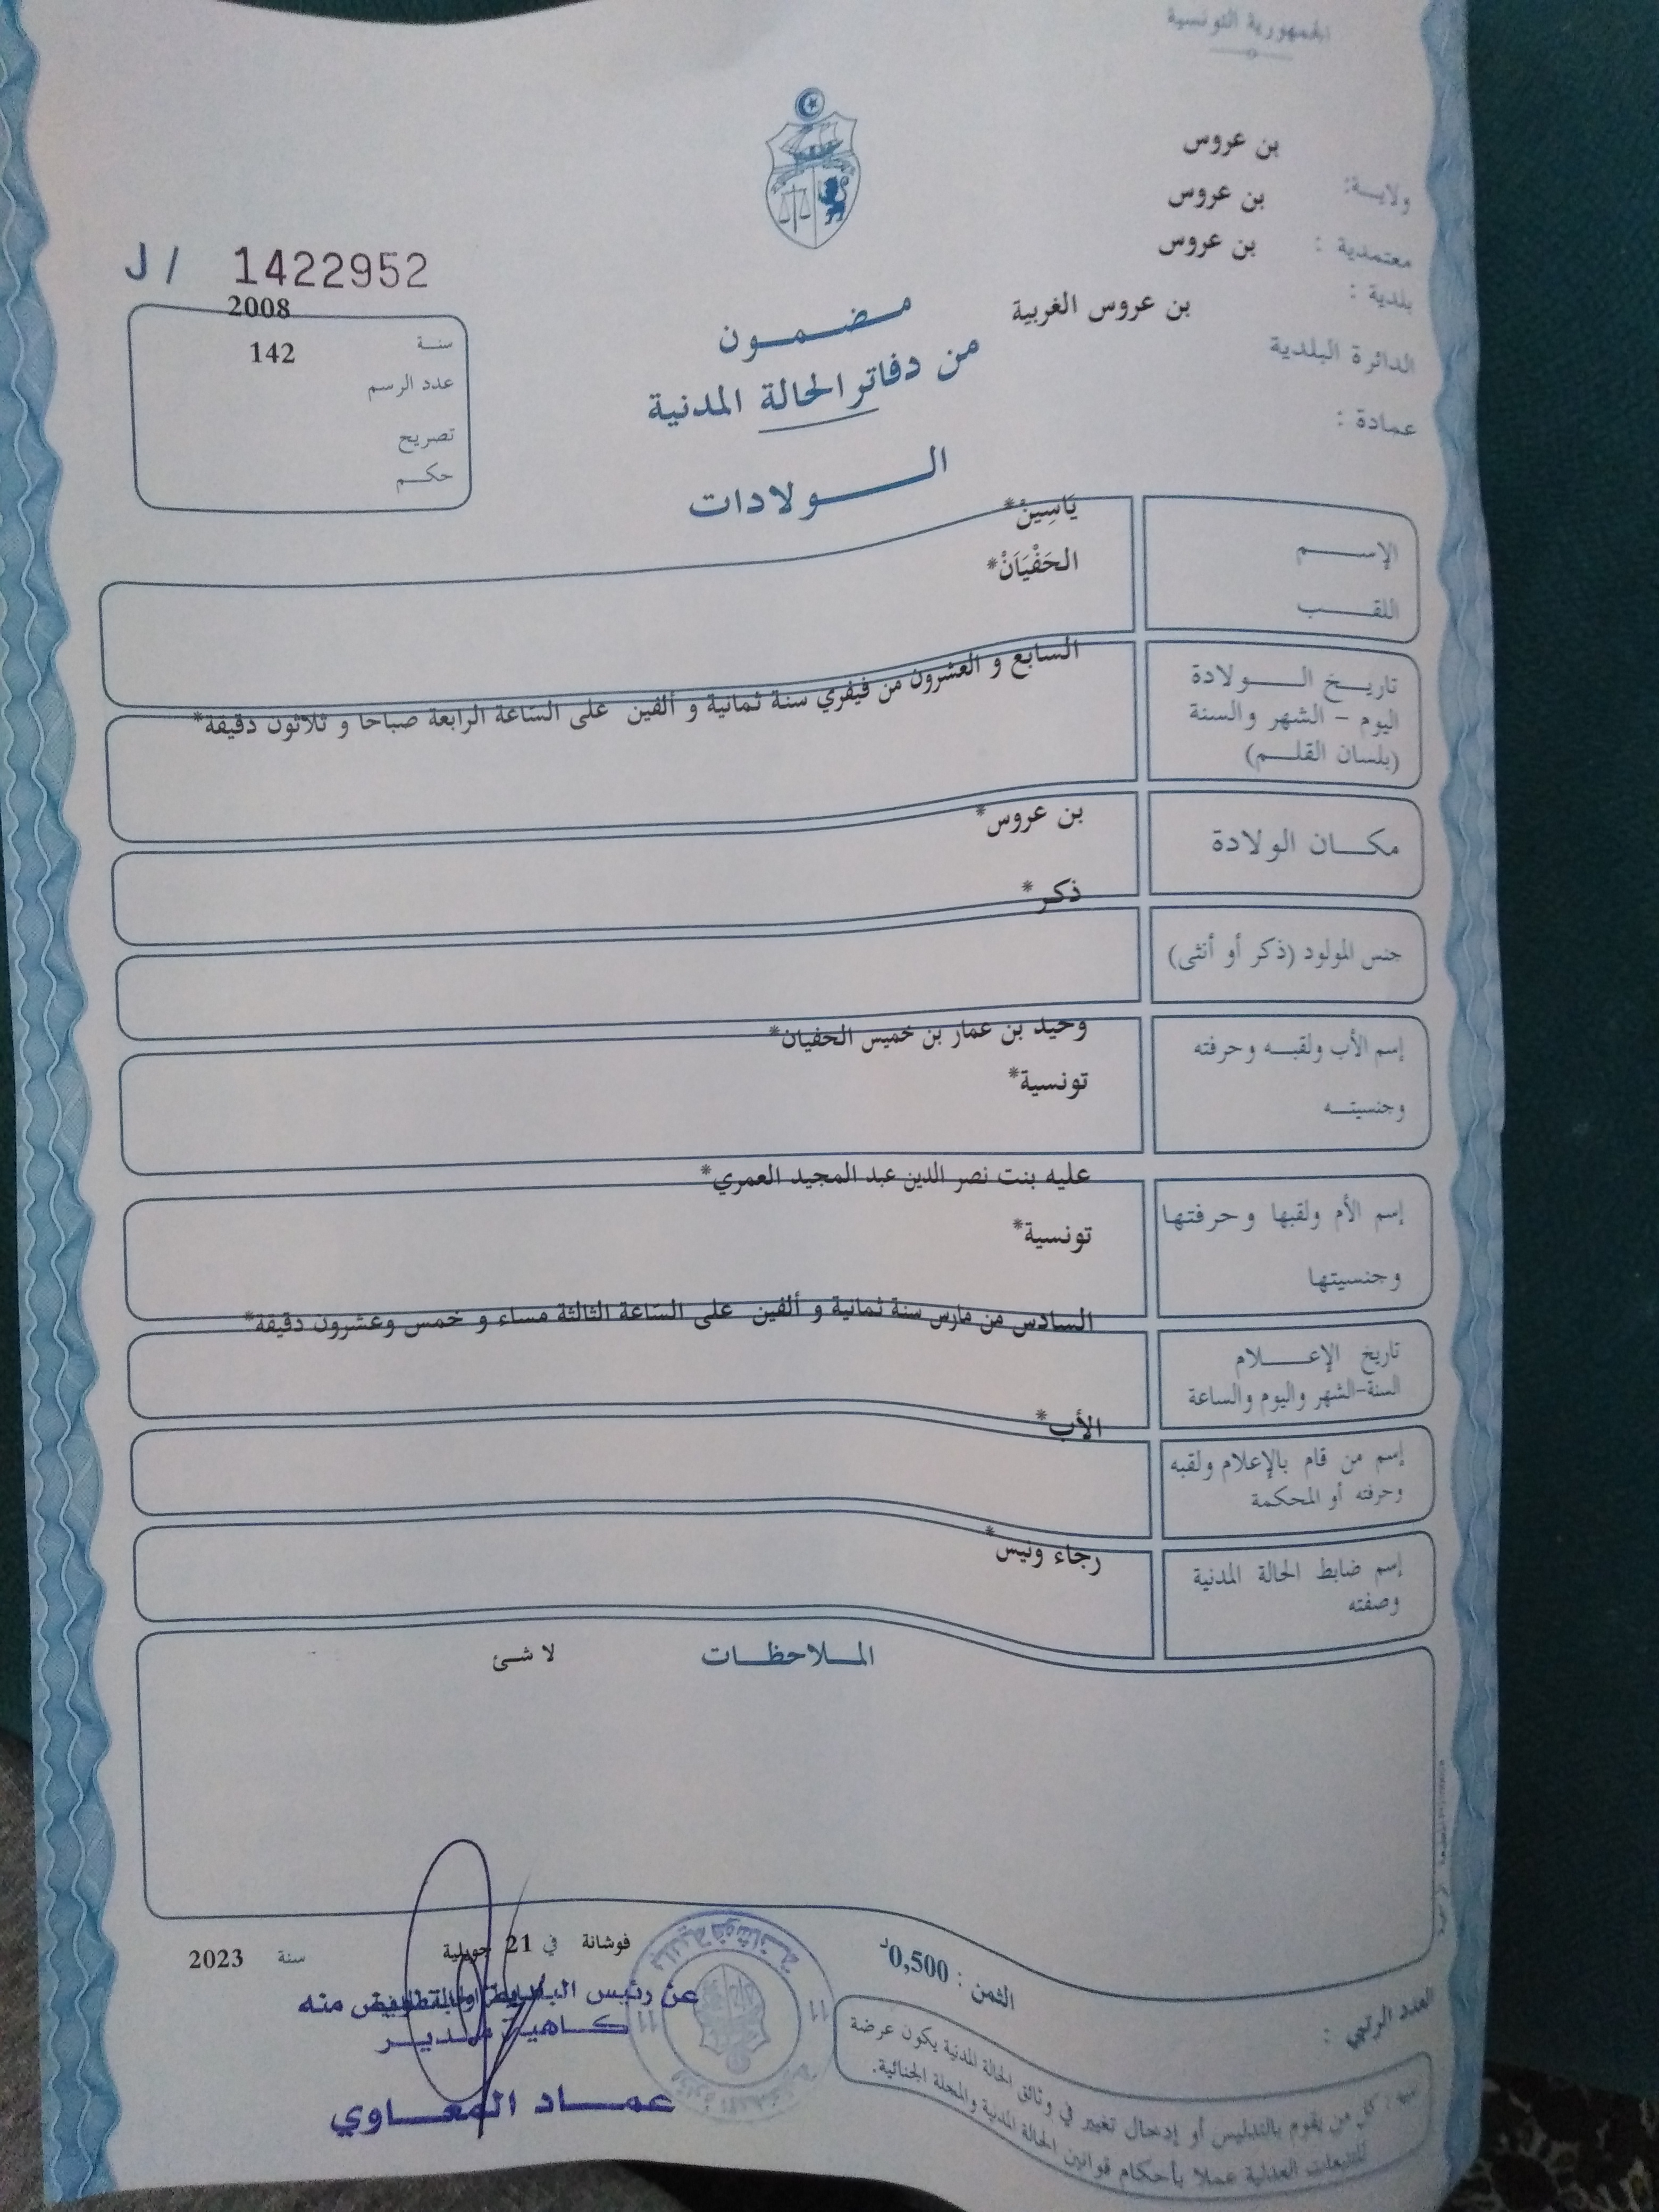 الجمهورية التونسية
بن عروس
ولايـة:
بن عروس
معتمدية :
بن عروس
بلدية :
بن عروس الغربية
الدائرة البلدية
عمادة :
J/ 1422952
2008
سنـة
142
عدد الرسم
تصريح
حكـم
مـضـمـون
من دفاتر الحالة المدنية
الـولادات
الإسـم
يَاسِينْ*
اللقـب
الحَفْيَاَنْ*
تاريـخ الـولادة
اليوم – الشهر والسنة
(بلسان القلـم)
السابع و العشرون من فيفري سنة ثمانية و ألفين على الساعة الرابعة صباحا و ثلاثون دقيقة*
مكـان الولادة
بن عروس*
جنس المولود (ذكر أو أنثى)
ذكر*
إسم الأب ولقبـه وحرفته
وحيد بن عمار بن خميس الحفيان*
وجنسيتـه
تونسية*
إسم الأم ولقبها وحرفتها
عليه بنت نصر الدين عبد المجيد العمري*
وجنسيتها
تونسية*
تاريخ الإعـلام
السنة-الشهر واليوم والساعة
السادس من مارس سنة ثمانية و ألفين على الساعة الثالثة مساء و خمس وعشرون دقيقة*
إسم من قام بالإعلام ولقبه
وحرفته أو المحكمة
الأب*
إسم ضابط الحالة المدنية
وصفته
رجاء ونيس*
الملاحظات
لا شئ
فوشانة في 21 جويلية سنة 2023
عن رئيس منه
كاهية مدير
عماد المعاوي
بلدية فوشانة
11 11
الثمن : 0,500د
العدد الرتبي :
تنبيه : كل من يقوم بالتدليس أو إدخال تغيير في وثائق الحالة المدنية يكون عرضة
للتتبعات العدلية عملا بأحكام قوانين الحالة المدنية والمجلة الجنائية.